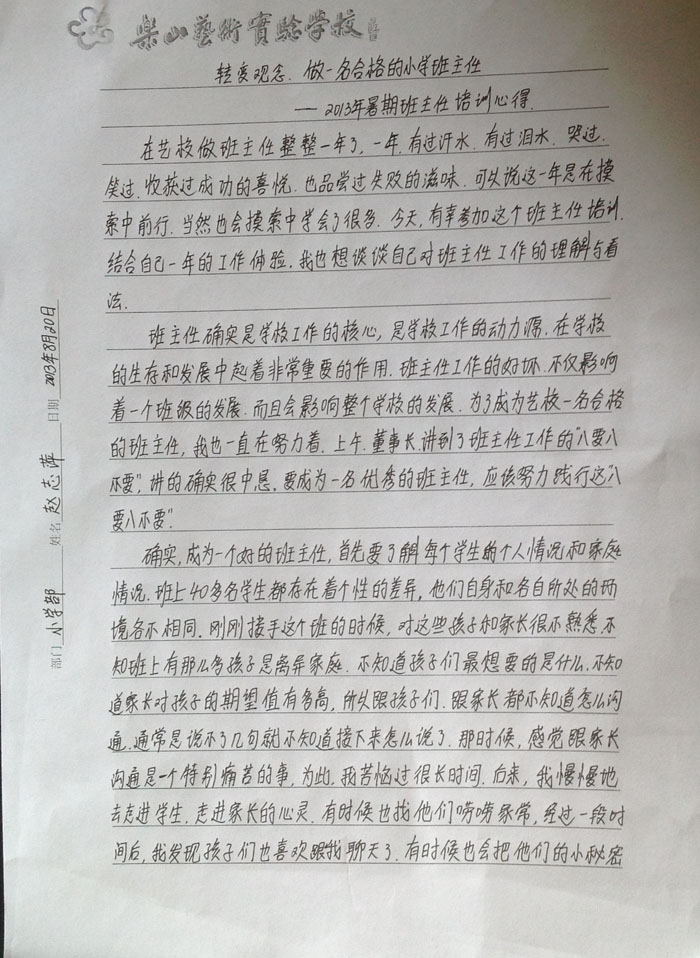 樂山藝術實驗學校
转变观念、做一名合格的小学班主任
——2013年暑期班主任培训心得
在艺校做班主任整整一年了,一年,有过汗水、有过泪水、哭过、
笑过、收获过成功的喜悦、也品尝过失败的滋味、可以说这一年是在摸
索中前行、当然也会摸索中学会了很多、今天,有幸参加这个班主任培训、
结合自己一年的工作体验、我也想谈谈自己对班主任工作的理解与看
法、
班主任确实是学校工作的核心,是学校工作的动力源、在学校
的生存和发展中起着非常重要的作用、班主任工作的好坏、不仅影响
着一个班级的发展、而且会影响整个学校的发展、为了成为艺校一名合格
的班主任,我也一直在努力着、上午、董事长讲到了班主任工作的“八要八
不要”、讲的确实很中恳、要成为一名优秀的班主任,应该努力践行这“八
要八不要”、
确实,成为一个好的班主任,首先要了解每个学生的个人情况和家庭
情况、班上40多名学生都存在着个性的差异,他们自身和各自所处的环
境各不相同、刚刚接手这个班的时候,对这些孩子和家长很不熟悉、不
知班上有那么多孩子是离异家庭、不知道孩子们最想要的是什么、不知
道家长对孩子的期望值有多高,所以跟孩子们、跟家长都不知道怎么沟
通、通常是说不了几句就不知道接下来怎么说了、那时候,感觉跟家长
沟通是一个特别痛苦的事,为此、我苦恼过很长时间、后来,我慢慢地
去走进学生、走进家长的心灵、有时候也找他们唠唠家常,经过一段时
间后,我发现孩子们也喜欢跟我聊天了、有时候也会把他们的小秘密
部门 小学部 姓名 赵志萍 日期 2013年8月20日